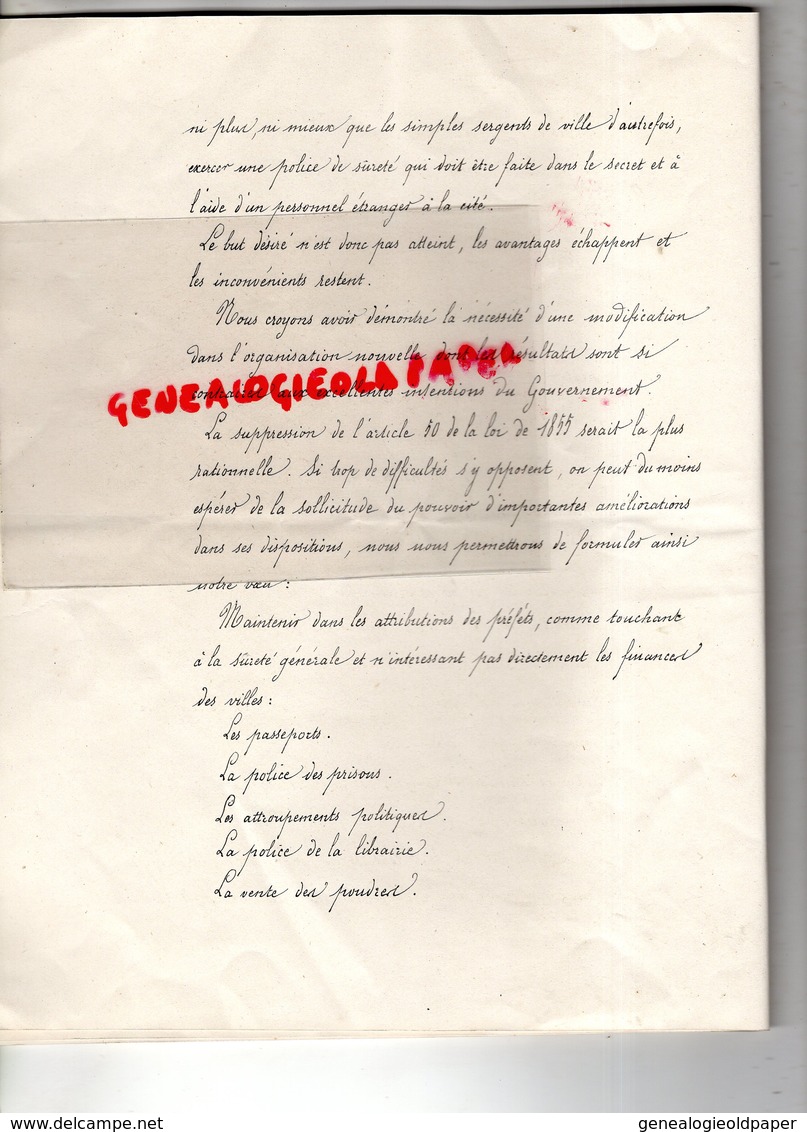 ni plus, ni mieux que les simples sergents de ville d'autrefois,
exercer une police de sûreté qui doit être faite dans le secret et à
l'aide d'un personnel étranger à la cité.
Le but désiré n'est donc pas atteint, les avantages échappent et
les inconvénients restent.
Nous croyons avoir démontré la nécessité d'une modification
dans l'organisation nouvelle dont les résultats sont si
contraires aux excellentes intentions du Gouvernement.
GENEALOGIEOLD PAPER
La suppression de l'article 50 de la loi de 1855 serait la plus
rationnelle. Si trop de difficultés s'y opposent, on peut du moins
espérer de la sollicitude du pouvoir d'importantes améliorations
dans ses dispositions, nous nous permettrons de formuler ainsi
notre vœu :
Maintenir dans les attributions des préfets, comme touchant
à la sûreté générale et n'intéressant pas directement les finances
des villes :
Les passeports.
La police des prisons.
Les attroupements politiques.
La police de la librairie.
La vente des poudres.
delcampe.net
genealogieoldpaper